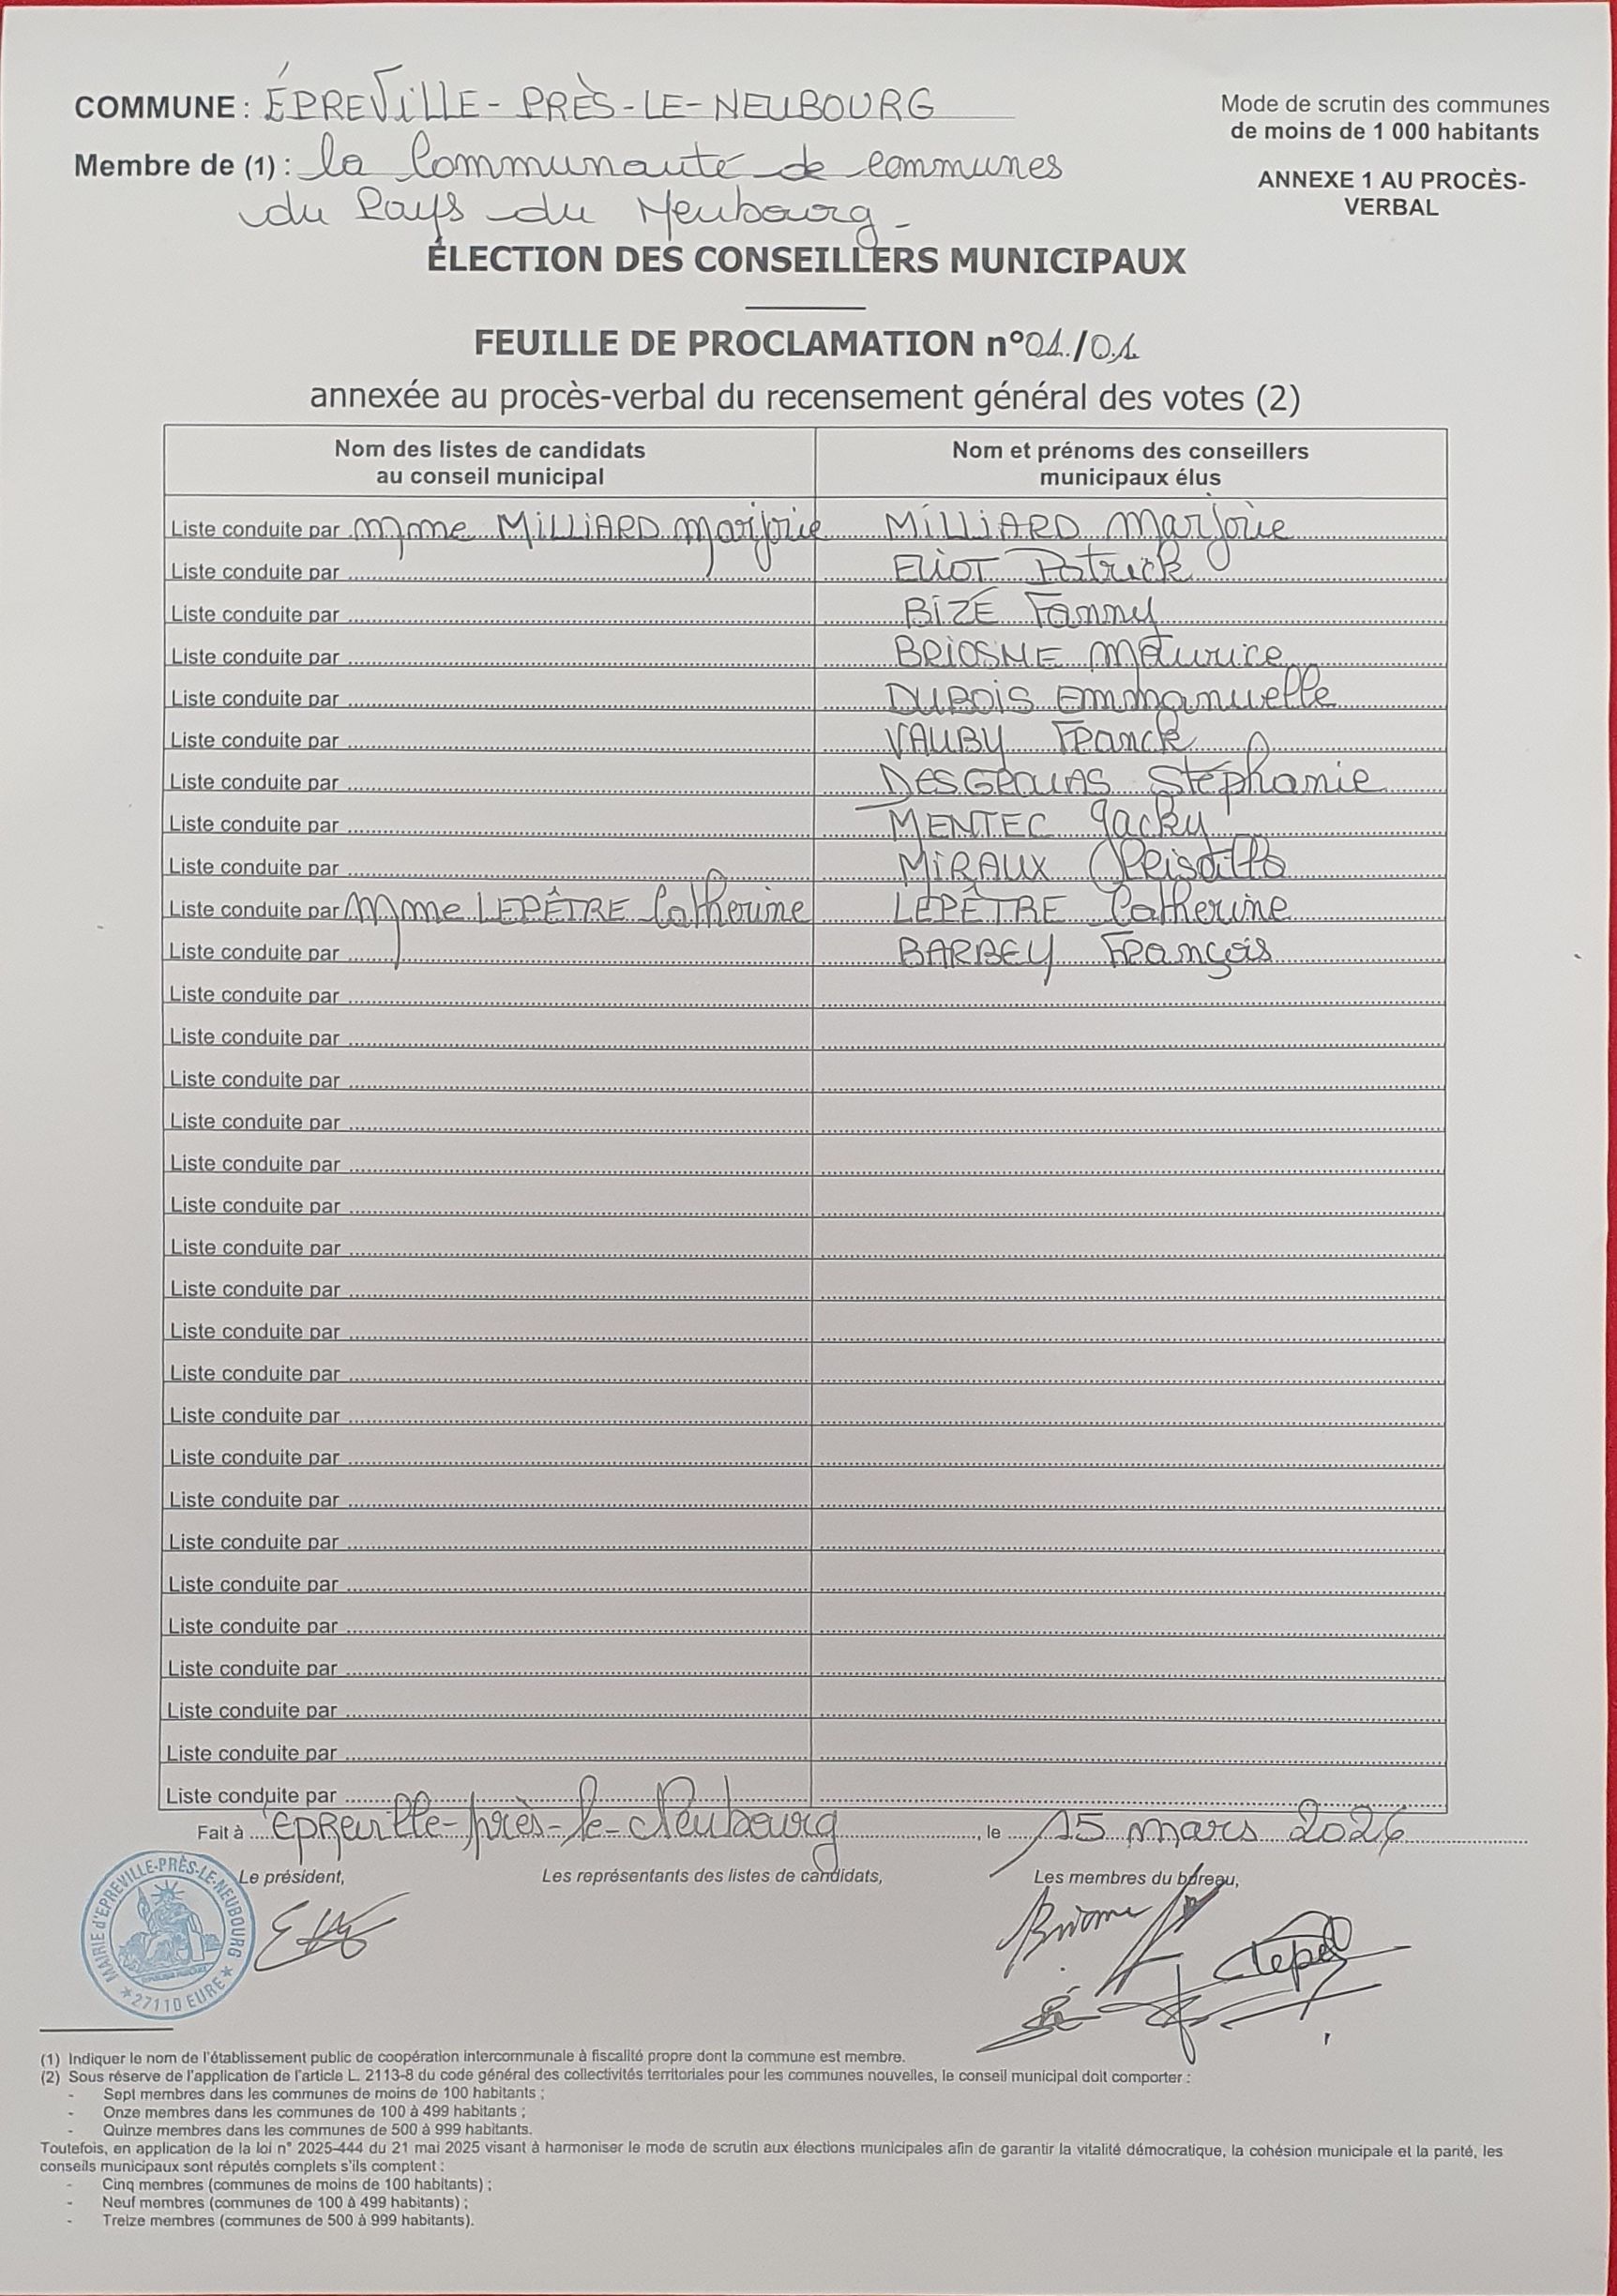 COMMUNE : ÉPREVILLE-PRÈS-LE-NEUBOURG
Mode de scrutin des communes
de moins de 1 000 habitants
Membre de (1) : la Communauté de communes
du Pays du Neubourg-
ANNEXE 1 AU PROCÈS-
VERBAL
ÉLECTION DES CONSEILLERS MUNICIPAUX
FEUILLE DE PROCLAMATION n°01/01
annexée au procès-verbal du recensement général des votes (2)
Nom des listes de candidats
au conseil municipal
Nom et prénoms des conseillers
municipaux élus
Liste conduite par Mme MILLIARD Marjorie MILLIARD Marjorie
Liste conduite par ELIOT Patrick
Liste conduite par BIZE Fanny
Liste conduite par BRIOSNE Maurice
Liste conduite par DUBOIS Emmanuelle
Liste conduite par VAUBY Franck
Liste conduite par Stéphanie
Liste conduite par MENTEC Jacky
Liste conduite par MIRAUX
Liste conduite par Mme LEPÊTRE Catherine LEPÊTRE Catherine
Liste conduite par BARBEY François
Liste conduite par
Liste conduite par
Liste conduite par
Liste conduite par
Liste conduite par
Liste conduite par
Liste conduite par
Liste conduite par
Liste conduite par
Liste conduite par
Liste conduite par
Liste conduite par
Liste conduite par
Liste conduite par
Liste conduite par
Liste conduite par
Liste conduite par
Liste conduite par
Liste conduite par
Liste conduite par
Fait à Epreville-près-le-Neubourg, le 15 mars 2026
Le président,
Les représentants des listes de candidats,
Les membres du bureau,
MAIRIE d'EPREVILLE-PRÈS-LE-NEUBOURG
★ 27110 EURE ★
(1) Indiquer le nom de l'établissement public de coopération intercommunale à fiscalité propre dont la commune est membre.
(2) Sous réserve de l'application de l'article L. 2113-8 du code général des collectivités territoriales pour les communes nouvelles, le conseil municipal doit comporter :
- Sept membres dans les communes de moins de 100 habitants ;
- Onze membres dans les communes de 100 à 499 habitants ;
- Quinze membres dans les communes de 500 à 999 habitants.
Toutefois, en application de la loi n° 2025-444 du 21 mai 2025 visant à harmoniser le mode de scrutin aux élections municipales afin de garantir la vitalité démocratique, la cohésion municipale et la parité, les
conseils municipaux sont réputés complets s'ils comptent :
- Cinq membres (communes de moins de 100 habitants) ;
- Neuf membres (communes de 100 à 499 habitants) ;
- Treize membres (communes de 500 à 999 habitants).